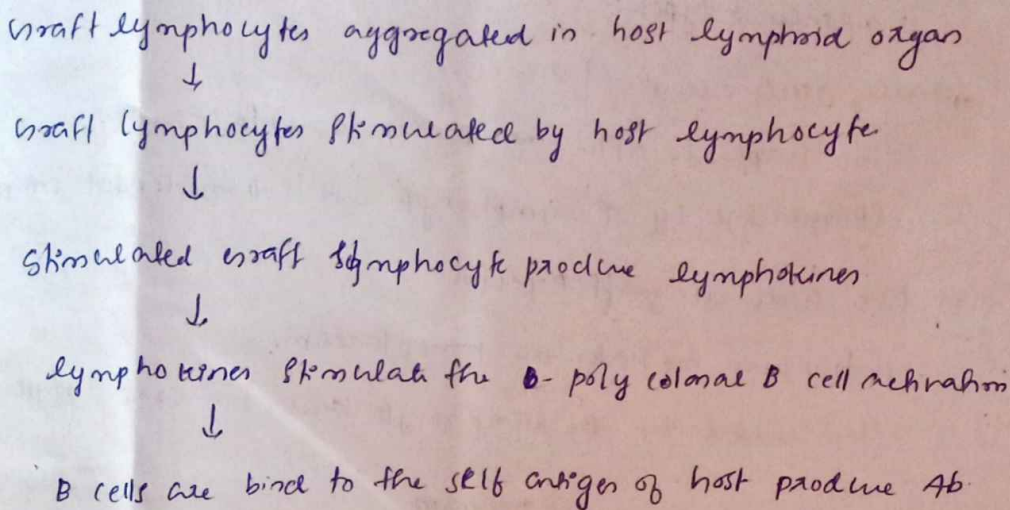 Graft lymphocytes aggregated in host lymphoid organ
↓
Graft lymphocytes stimulated by host lymphocyte
↓
Stimulated graft lymphocyte produce lymphokines
↓
lymphokines stimulate the poly colonal B cell activation
↓
B cells are bind to the self antigen of host produce Ab